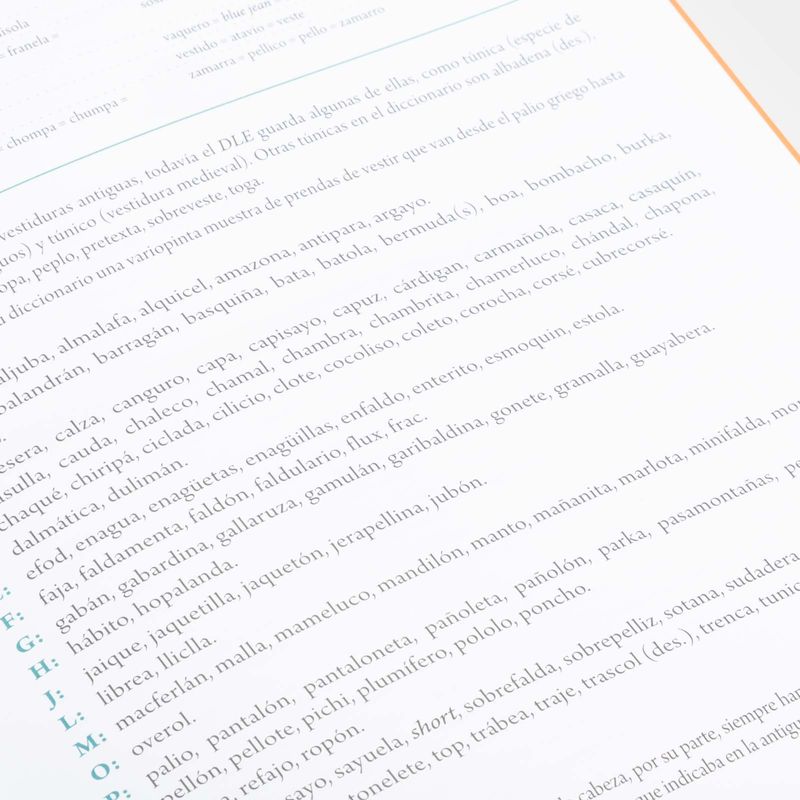 = franela =
vaquero = blue jean =
vestido = atavio = veste
zamarra = pellico = pello = zamarro
= chompa = chumpa =
vestiduras antiguas, todavía el DLE guarda algunas de ellas, como túnica (especie de
y túnico (vestidura medieval). Otras túnicas en el diccionario son albadena (des.),
peplo, pretexta, sobreveste, toga.
diccionario una variopinta muestra de prendas de vestir que van desde el palio griego hasta
aljuba, almalafa, alquicel, amazona, antipara, argayo.
balandrán, barragán, basquiña, bata, batola, bermuda(s), boa, bombacho, burka,
calza, canguro, capa, capisayo, capuz, cárdigan, carmañola, casaca, casaquín,
cauda, chaleco, chamal, chambra, chambrita, chamerluco, chándal, chapona,
chaqué, chiripá, ciclada, cilicio, clote, cocoliso, coleto, corocha, corsé, cubrecorsé.
dalmática, dulimán.
efod, enagua, enagüetas, enagüillas, enfaldo, enterito, esmoquin, estola.
F: faja, faldamenta, faldón, faldulario, flux, frac.
G: gabán, gabardina, gallaruza, gamulán, garibaldina, gonete, gramalla, guayabera.
H: hábito, hopalanda.
J: jaique, jaquetilla, jaquetón, jerapellina, jubón.
L: librea, lliclla.
M: macferlán, malla, mameluco, mandilón, manto, mañanita, marlota, minifalda,
O: overol.
P: palio, pantalón, pantaloneta, pañoleta, pañolón, parka, pasamontañas,
pellón, pellote, pichi, plumífero, pololo, poncho.
refajo, ropón.
sayo, sayuela, short, sobrefalda, sobrepelliz, sotana, sudadera
tonelete, top, trábea, traje, trascol (des.), trenca,
cabeza, por su parte, siempre
que indicaba en la